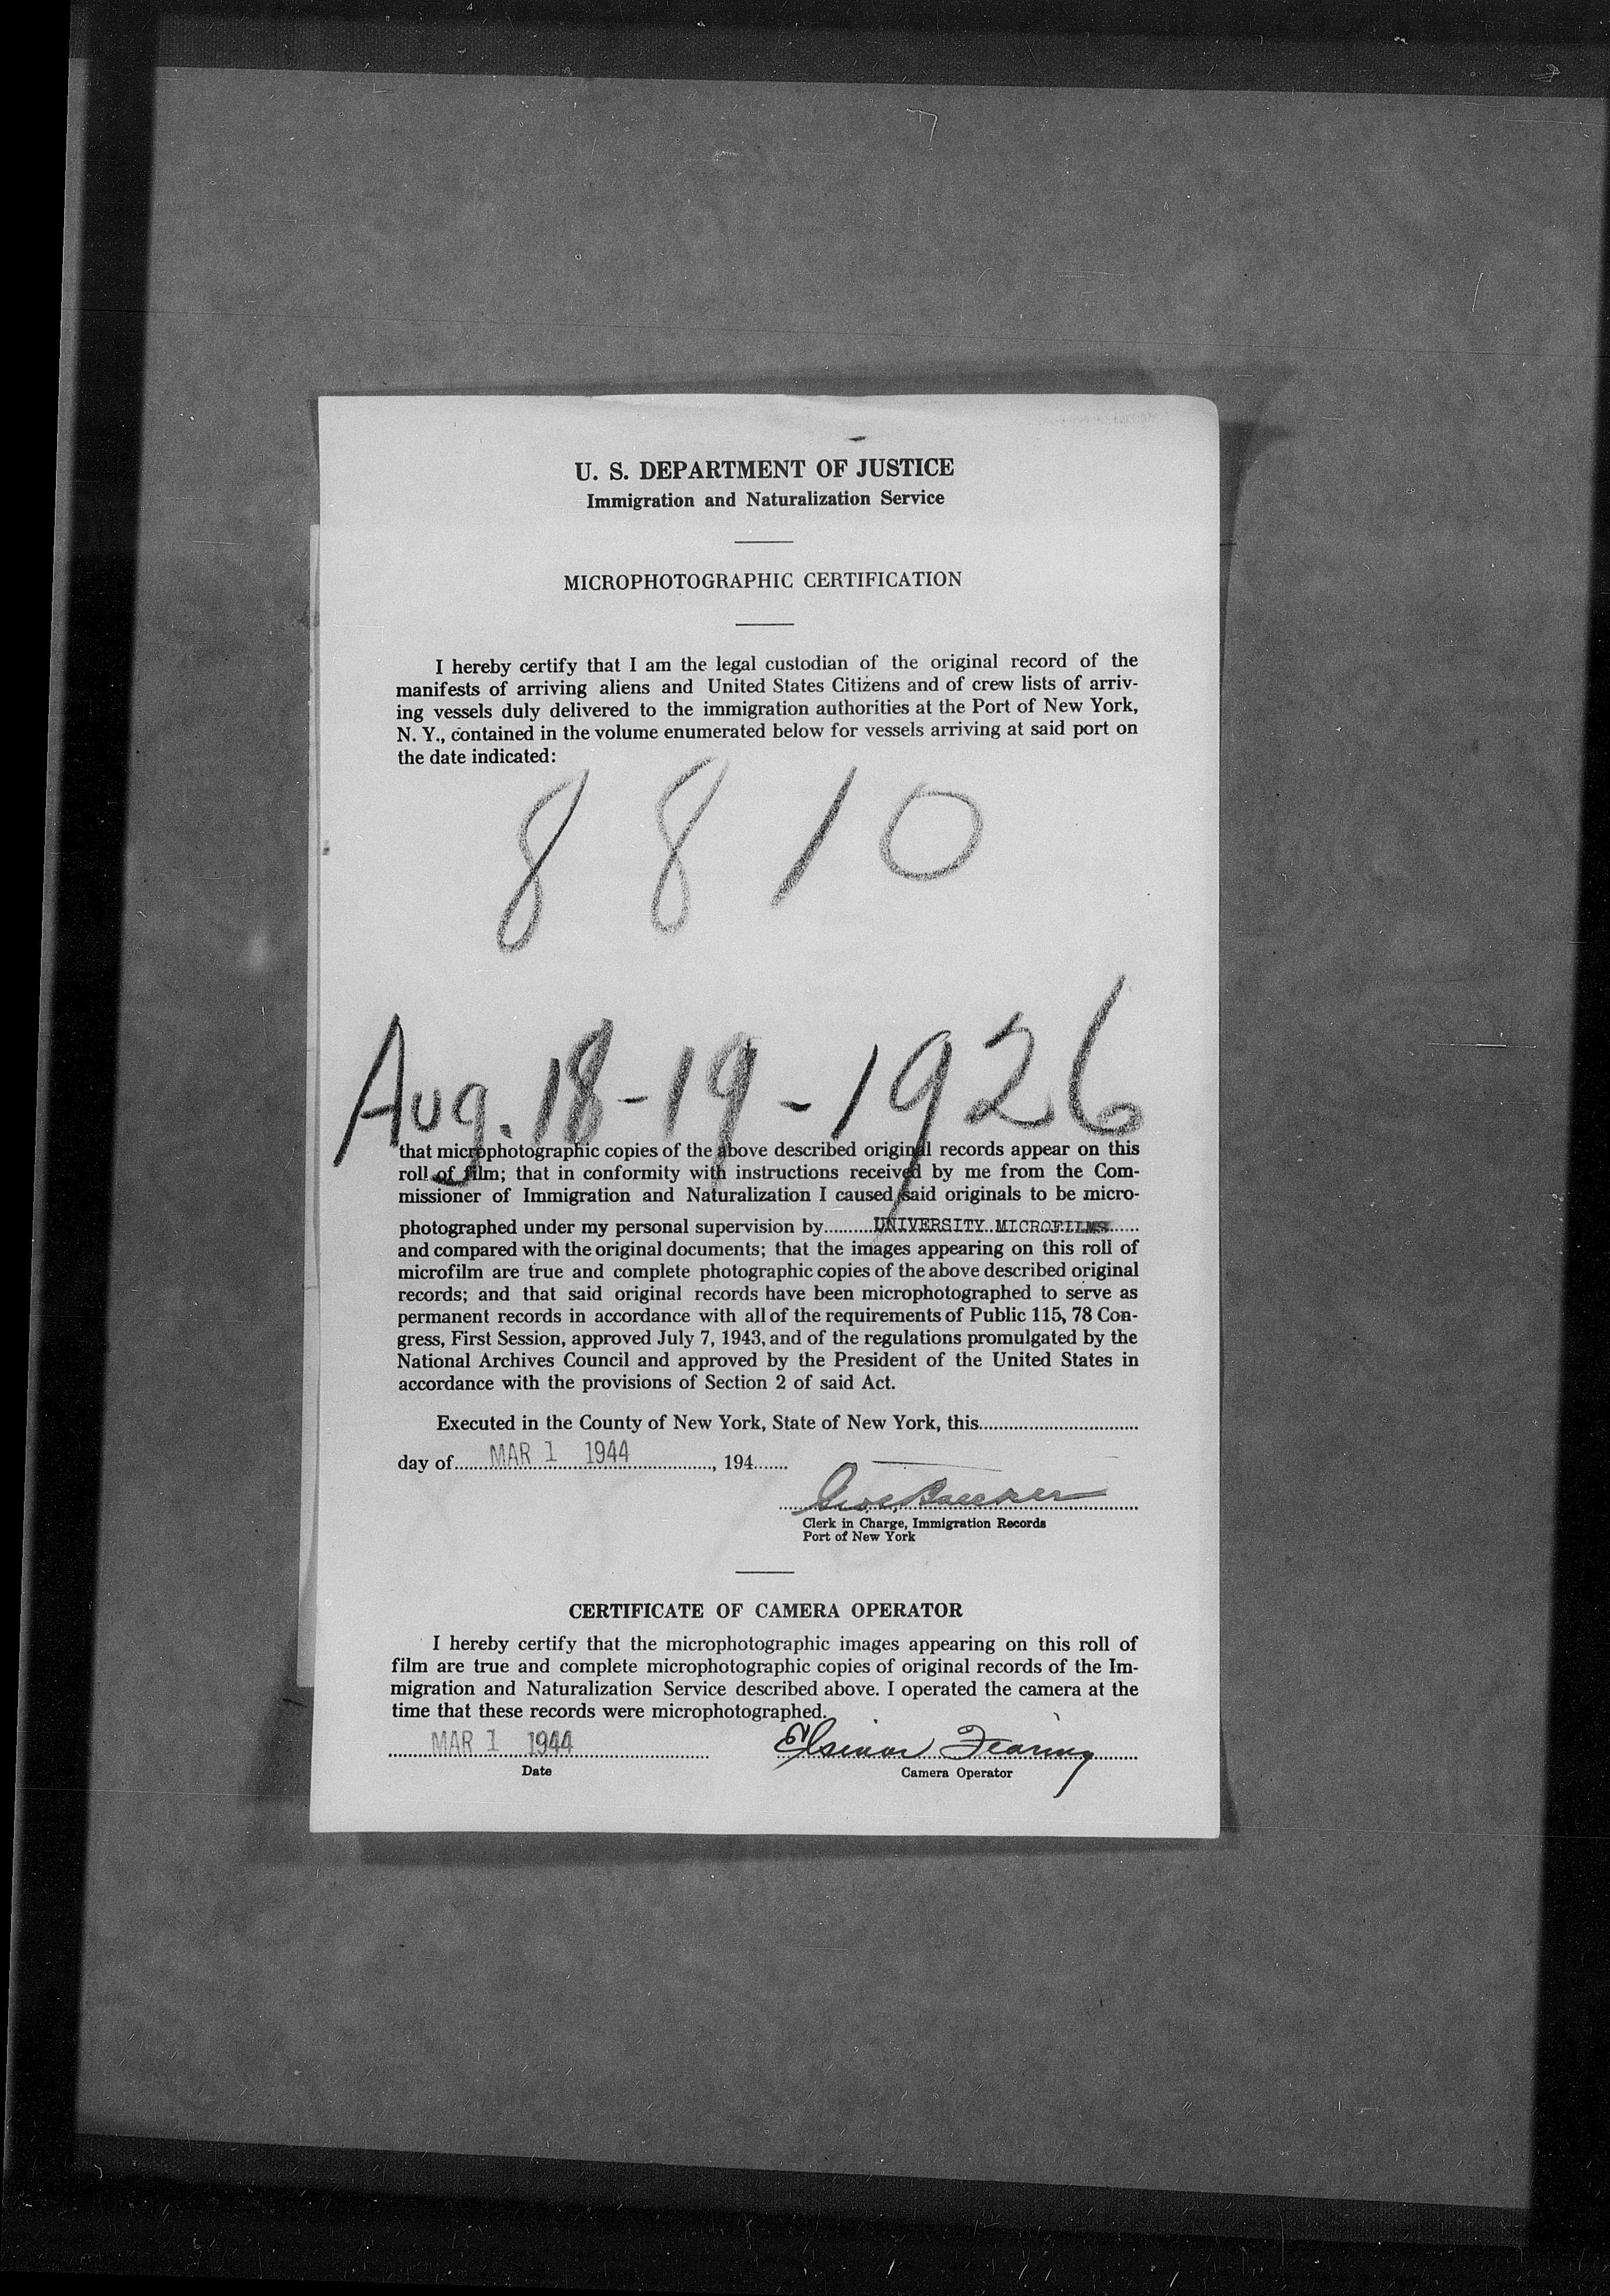 U. S. DEPARTMENT OF JUSTICE
Immigration and Naturalization Service
MICROPHOTOGRAPHIC CERTIFICATION
I hereby certify that I am the legal custodian of the original record of the
manifests of arriving aliens and United States Citizens and of crew lists of arriv-
ing vessels duly delivered to the immigration authorities at the Port of New York,
N. Y., contained in the volume enumerated below for vessels arriving at said port on
the date indicated:
8 8 1 0
Aug. 18-19-1926
that microphotographic copies of the above described original records appear on this
roll of film; that in conformity with instructions received by me from the Com-
missioner of Immigration and Naturalization I caused said originals to be micro-
photographed under my personal supervision by UNIVERSITY MICROFILMS
and compared with the original documents; that the images appearing on this roll of
microfilm are true and complete photographic copies of the above described original
records; and that said original records have been microphotographed to serve as
permanent records in accordance with all of the requirements of Public 115, 78 Con-
gress, First Session, approved July 7, 1943, and of the regulations promulgated by the
National Archives Council and approved by the President of the United States in
accordance with the provisions of Section 2 of said Act.
Executed in the County of New York, State of New York, this
day of MAR 1 1944, 194
Clerk in Charge, Immigration Records
Port of New York
CERTIFICATE OF CAMERA OPERATOR
I hereby certify that the microphotographic images appearing on this roll of
film are true and complete microphotographic copies of original records of the Im-
migration and Naturalization Service described above. I operated the camera at the
time that these records were microphotographed.
MAR 1 1944 Fearing
Date Camera Operator